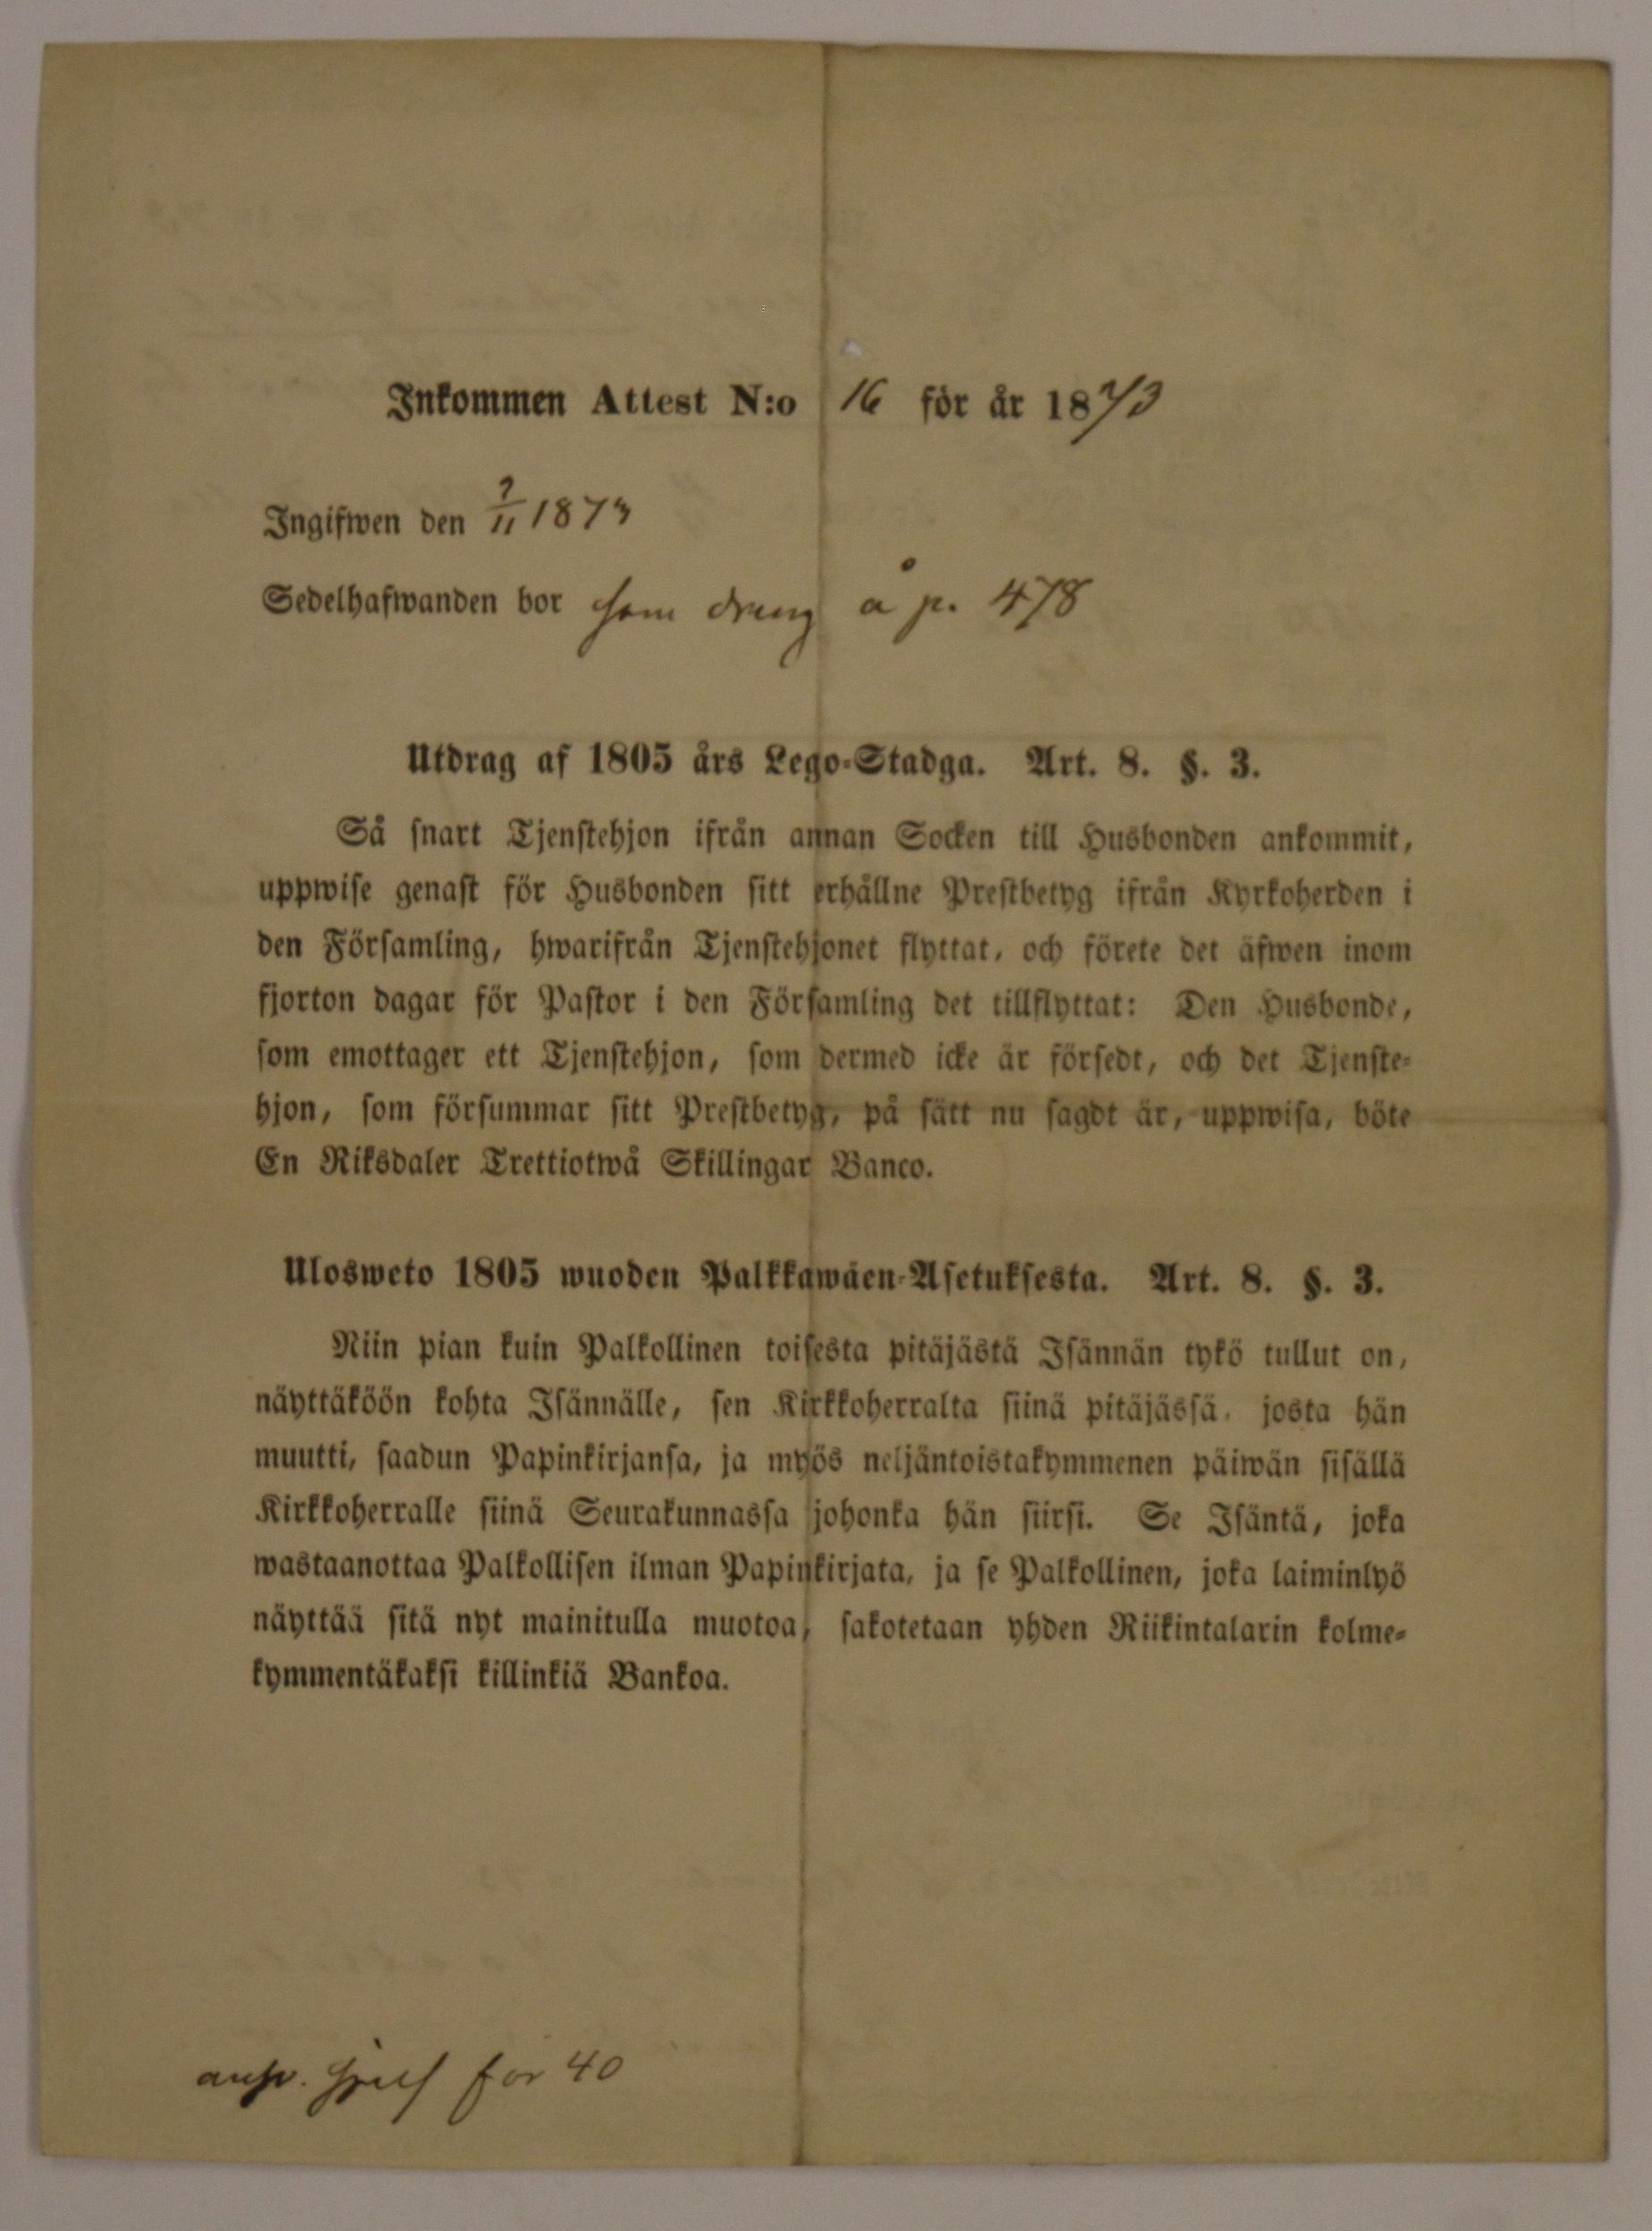 Inkommen Attest N:o 16 för år 1873
Ingifwen den 7/11 1873
Sedelhafwanden bor som dreng å p. 478
Utdrag af 1805 års Lego-Stadga. Art. 8. §. 3.
Så snart Tjenstehjon ifrån annan Socken till Husbonden ankommit,
uppwise genast för Husbonden sitt erhållne Prestbetyg ifrån Kyrkoherden i
den Församling, hwarifrån Tjenstehjonet flyttat, och förete det äfwen inom
fjorton dagar för Pastor i den Församling det tillflyttat: Den Husbonde,
som emottager ett Tjenstehjon, som dermed icke är försedt, och det Tjenste-
hjon, som försummar sitt Prestbetyg, på sätt nu sagdt är, uppwisa, böte
En Riksdaler Trettiotwå Skillingar Banco.
Ulosweto 1805 wuoden Palkkawäen-Asetuksesta. Art. 8. §. 3.
Niin pian kuin Palkollinen toisesta pitäjästä Isännän tykö tullut on,
näyttäköön kohta Isännälle, sen Kirkkoherralta siinä pitäjässä, josta hän
muutti, saadun Papinkirjansa, ja myös neljäntoistakymmenen päiwän sisällä
Kirkkoherralle siinä Seurakunnassa johonka hän siirsi. Se Isäntä, joka
wastaanottaa Palkollisen ilman Papinkirjata, ja se Palkollinen, joka laiminlyö
näyttää sitä nyt mainitulla muotoa, sakotetaan yhden Riikintalarin kolme-
kymmentäkaksi killinkiä Bankoa.
för 40